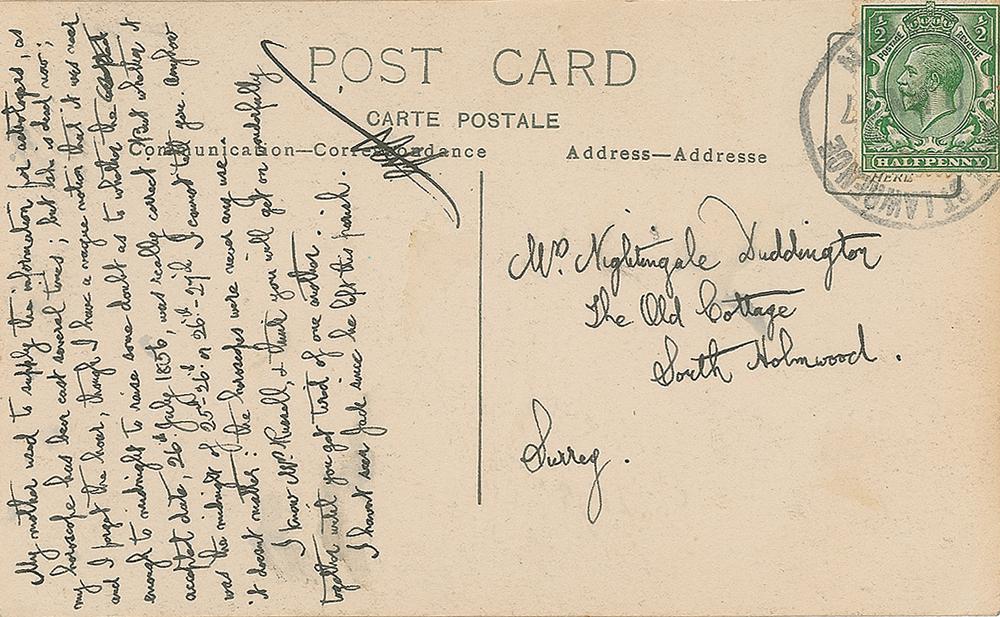 POST CARD
CARTE POSTALE
Communication—Correspondance
Address—Addresse
½ ½
POSTAGE REVENUE
HALFPENNY
HERE
ST LAWRENCE
My mother used to supply the information for astrologers, as
my horoscope has been cast several times; but she is dead now;
and I forget the hour, though I have a vague notion that it was near
enough to midnight to raise some doubt as to whether the
accepted date, 26th July 1856, was really correct. But whether it
was the midnight of 25th-26th or 26th-27th I cannot tell you. Anyhow
it doesnt matter: the horoscopes were never any use.
I know Mrs Russell, & think you will get on wonderfully
together until you get tired of one another.
I havent seen Jack since he left this parish.
Mrs Nightingale Duddington
The Old Cottage
South Holmwood.
Surrey.